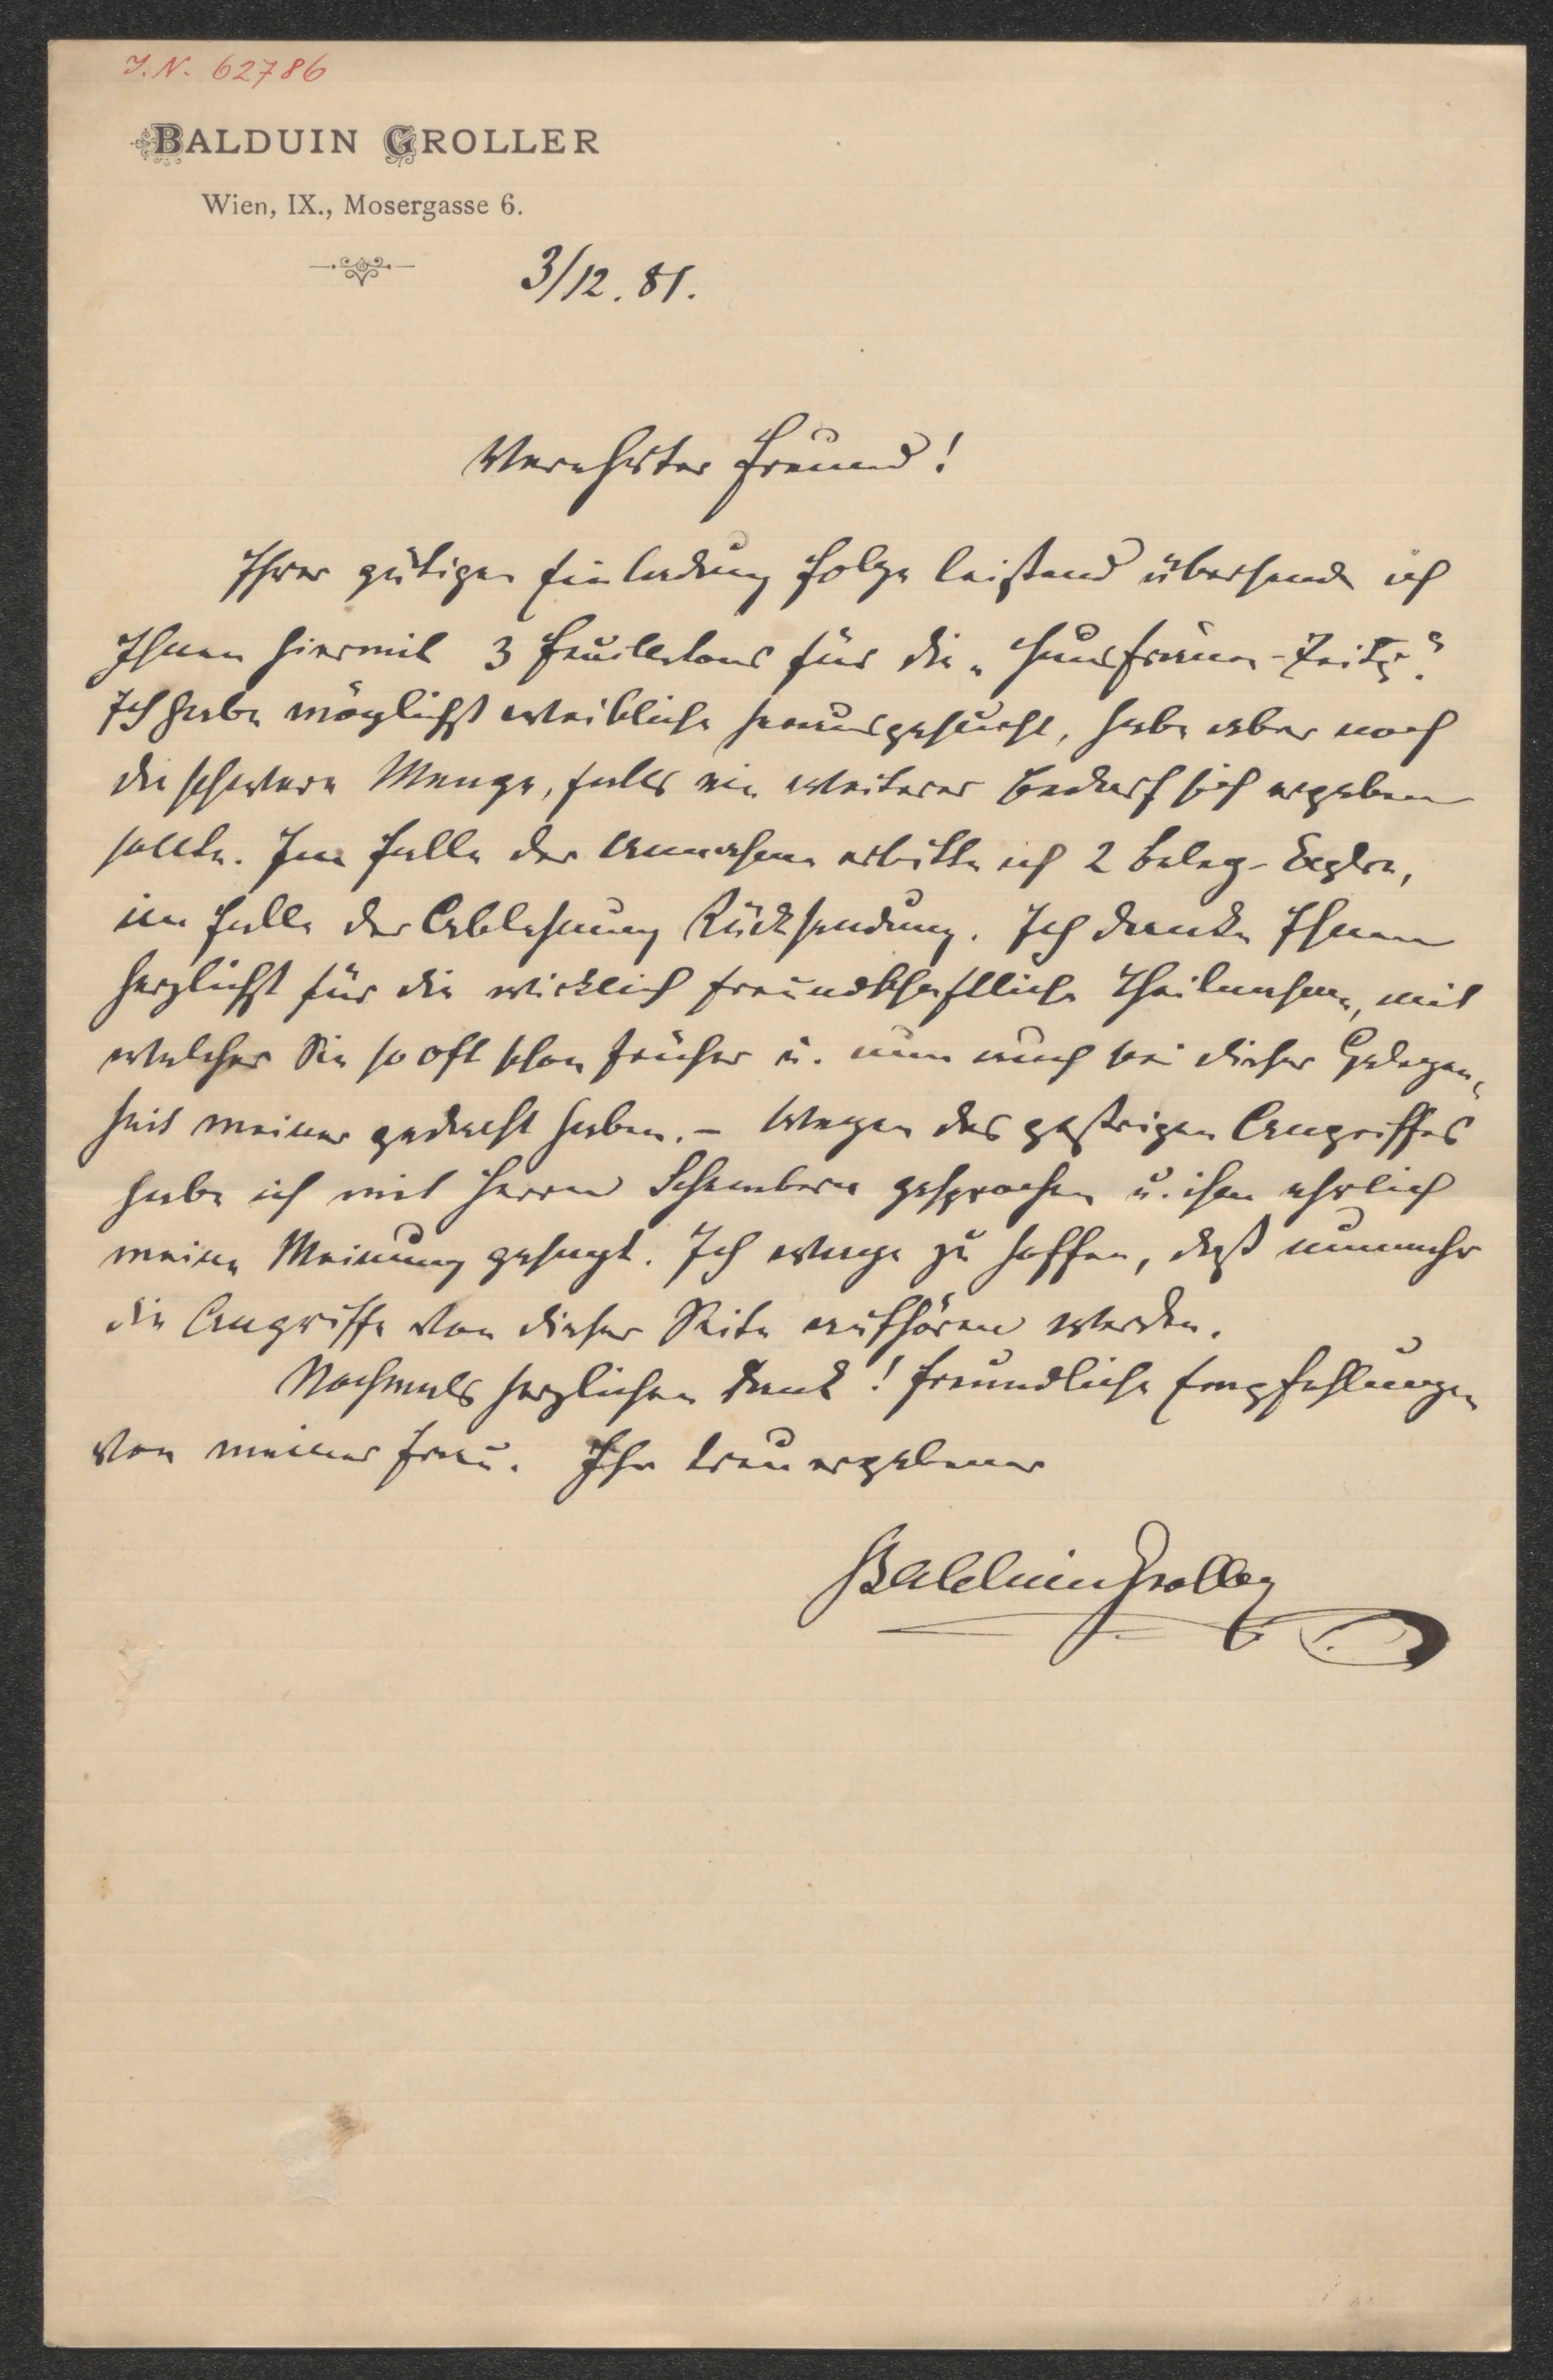 J.N. 62786
BALDUIN GROLLER
Wien, IX., Mosergasse 6.
3/12. 81.
Verehrter Freund!
Ihrer gütigen Einladung Folge leistend übersende ich
Ihnen hiermit 3 Feuilletons für die „Hausfrauen-Zeitg".
Ich habe möglichst weibliche herausgesucht, habe aber noch
die schwere Menge, falls ein weiterer Bedarf sich ergeben
sollte. Im Falle der Annahme erbitte ich 2 Beleg-Explre,
im Falle der Ablehnung Rücksendung. Ich danke Ihnen
herzlichst für die wirklich freundschaftliche Theilnahme, mit
welcher Sie so oft schon früher u. nun auch bei dieser Gelegen-
heit meiner gedacht haben. – Wegen des gestrigen Angriffes
habe ich mit Herrn Schembera gesprochen u. ihm ehrlich
meine Meinung gesagt. Ich wage zu hoffen, daß nunmehr
die Angriffe von dieser Seite aufhören werden.
Nochmals herzlichen Dank! Freundliche Empfehlungen
von meiner Frau. Ihr treu ergebener
Balduin Groller